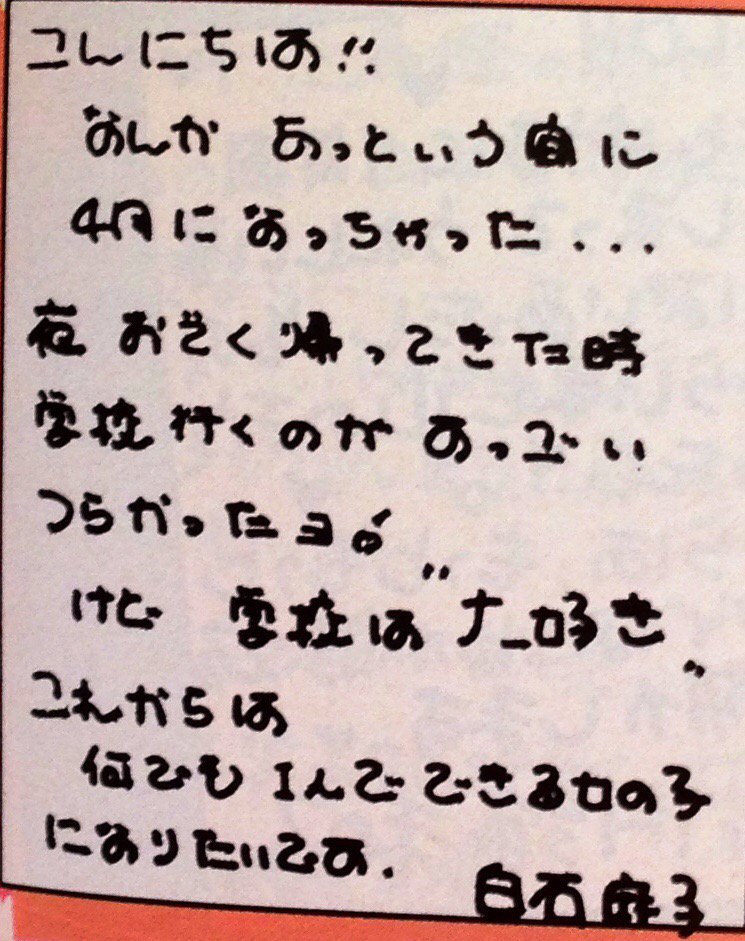 こんにちは!!
なんか あっという間に
4月になっちゃった...
夜おそく帰ってきた時
学校行くのが あっごい
つらかったヨ
けど 学校は "大好き"
これからは
何でも 1人でできる女の子
になりたいです.
白石麻子